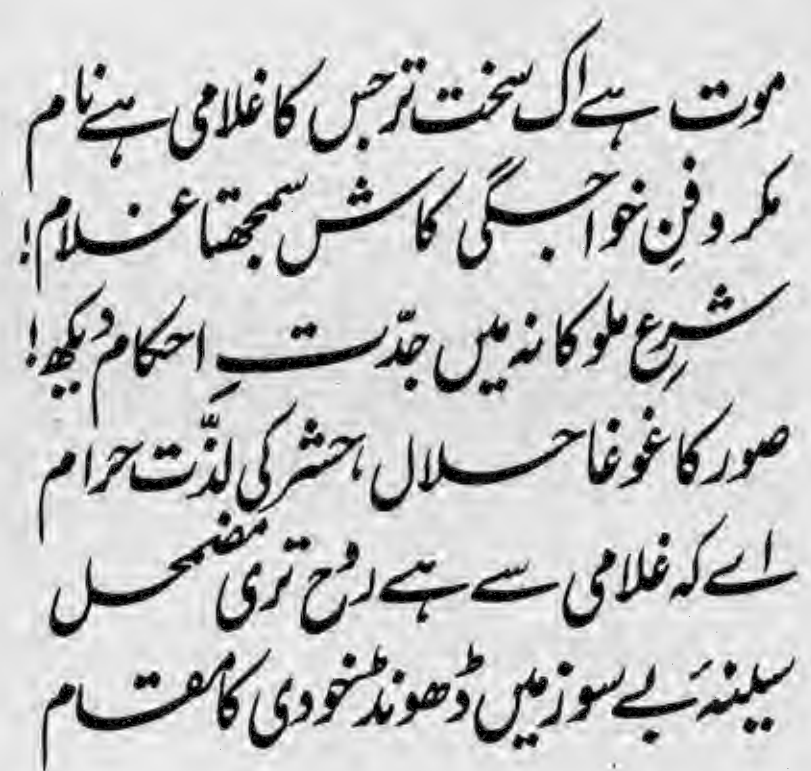 موت ہے اک سخت تر جس کا غلامی ہے نام
مکر و فنِ خواجگی کاش سمجھتا غلام!
شرعِ ملوکانہ میں جدّتِ احکام دیکھ!
صور کا غوغا حلال، حشر کی لذّت حرام
اے کہ غلامی سے ہے روح تری مضمحل
سینۂ بے سوز میں ڈھونڈ خودی کا مقام